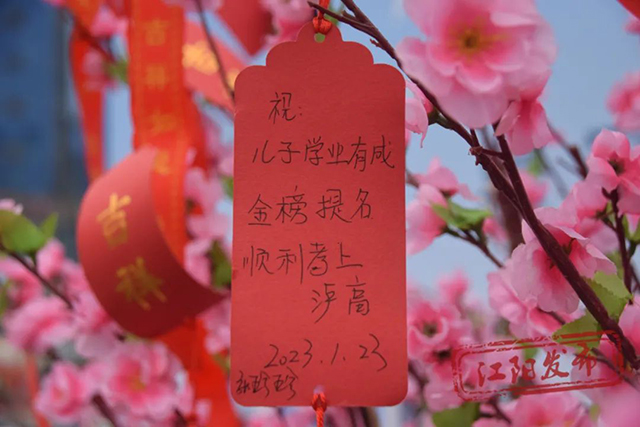 祝:
儿子学业有成
金榜提名
顺利考上
泸高
2023.1.23
吉祥如
吉祥
江阳发布